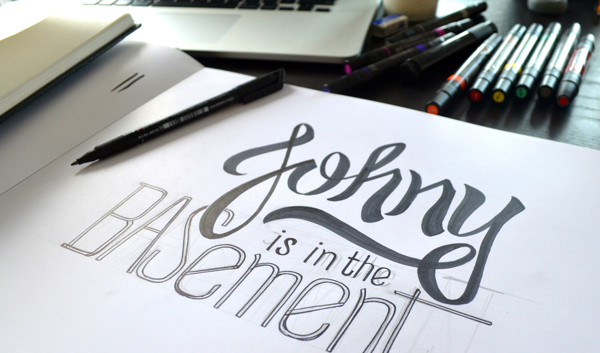 Johny
is in the
BASement